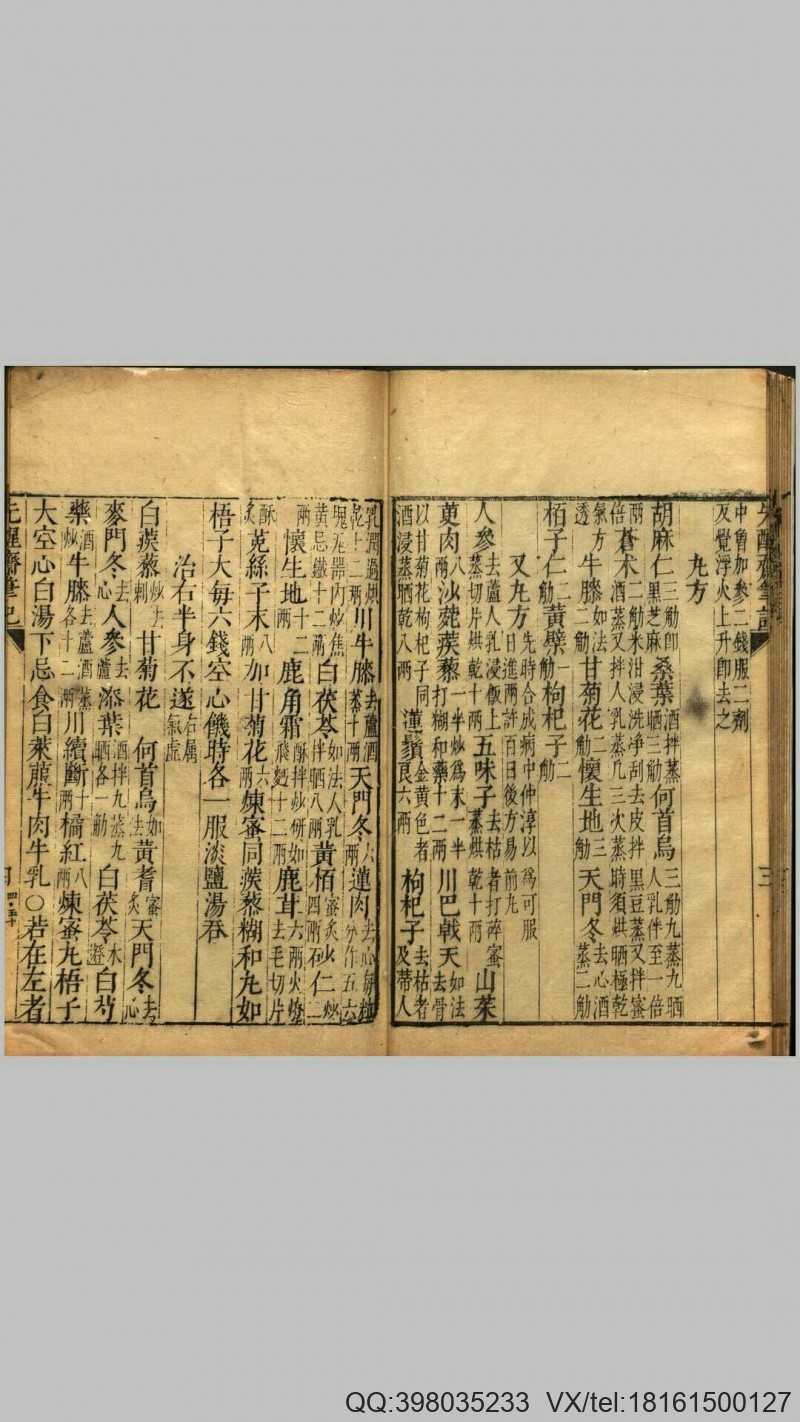 中曾加參二錢服二劑
反覺浮火上升即去之
丸方
胡麻仁三觔即黑芝麻桑葉酒拌蒸晒三觔何首烏三觔九蒸九晒人乳伴至一倍
兩蒼术二觔米泔浸洗净刮去皮拌黑豆蒸又拌蜜酒蒸又拌人乳蒸几三次蒸時須烘晒極乾
氣方透牛膝如法二觔甘菊花二觔懷生地三觔天門冬去心酒蒸二觔
栢子仁二觔黃檗一觔枸杞子二觔
又丸方先時合成病中仲淳以為可服日進兩許百日後方易前丸
人參去蘆人乳浸飯上蒸切片烘乾十兩五味子去枯者打碎蜜蒸烘乾十兩山茱
萸肉八兩沙蒺藜一半炒為末一半打糊和藥十二兩川巴戟天如法去骨
以甘菊花枸杞子同酒浸蒸晒乾八兩蓮鬚金黃色者良六兩枸杞子去枯者及蒂人
乳潤過烘乾十二兩川牛膝去蘆酒蒸十兩天門冬六兩蓮肉去心每粒分作五六
塊瓦器內炒焦黃忌鐵十二兩白茯苓如法人乳拌晒八兩黃栢蜜炙四兩砂仁炒二
兩懷生地十二兩鹿角霜酥拌炒研如飛麫十二兩鹿茸六兩火燎去毛切片
酥炙菟絲子末八兩加甘菊花六兩煉蜜同蒺藜糊和丸如
梧子大每六錢空心饑時各一服淡鹽湯吞
治右半身不遂右属氣虛
白蒺藜炒去刺甘菊花 何首烏如法黃耆蜜炙天門冬去心
麥門冬去心人參去蘆漆葉酒拌九蒸九晒各一觔白茯苓水澄白芍
藥酒炒牛膝去蘆酒蒸各十二兩川續斷十兩橘紅八兩煉蜜丸梧子
大空心白湯下忌食白萊菔牛肉牛乳○若在左者
先醒齋筆記
QQ:398035233 VX/tel:18161500127